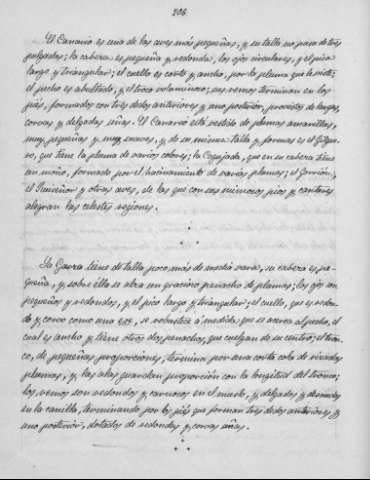 206
El Canario es una de las aves más pequeñas, y su talla no pasa de tres
pulgadas; la cabeza es pequeña y redonda, los ojos circulares, y el pico
largo y triangular; el cuello es corto y ancho, por la pluma que la viste;
el pecho es abultado, y el torso voluminoso; sus remos terminan en los
piés, formados con tres dedos anteriores y uno posterior, provistos de largas,
corvas y delgadas uñas. El Canario está vestido de plumas amarillas,
muy pequeñas y muy suaves, y de su misma talla y formas es el Gilgue-
ro, que tiene la pluma de varios colores; la Cogujada, que en su cabeza tiene
un moño, formado por el hacinamiento de varias plumas; el Gorrión,
el Ruiseñor y otras aves, de las que con sus mimosos pios y cantares
alegran las celestes regiones.
La Garza tiene de talla poco más de media vara, su cabeza es pe-
queña, y sobre ella se abre un gracioso penacho de plumas; los ojos son
pequeños y redondos, y el pico largo y triangular; el cuello, que es redon-
do y corvo como una ese, se robustece á medida que se acerca al pecho, el
cual es ancho y tiene otros dos penachos, que cuelgan de su centro; el tron-
co, de pequeñas proporciones, termina por una corta cola de rizadas
plumas, y las alas guardan proporción con la longitud del tronco;
los remos son redondos y carnosos en el muslo, y delgados y
en la canilla, terminando por los piés que forman tres dedos anteriores y
uno posterior, dotados de redondas y corvas uñas.